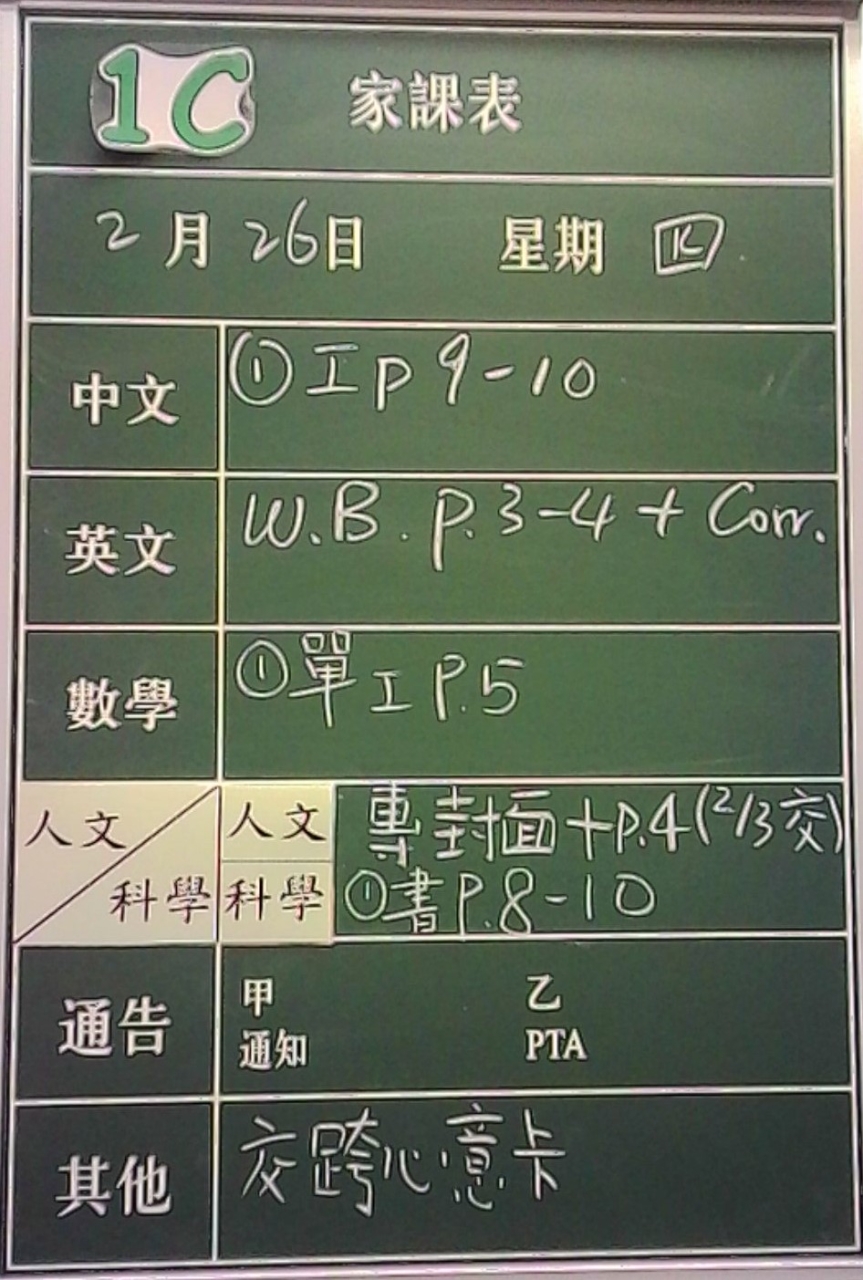 1C 家課表
2月26日 星期四
中文 ①工p 9-10
英文 W.B. p.3-4 + Corr.
數學 ①單工 P.5
人文 人文 專封面+p.4(2/3交)
科學 科學 ①書P.8-10
通告 甲 乙
通知 PTA
其他 交跨心意卡